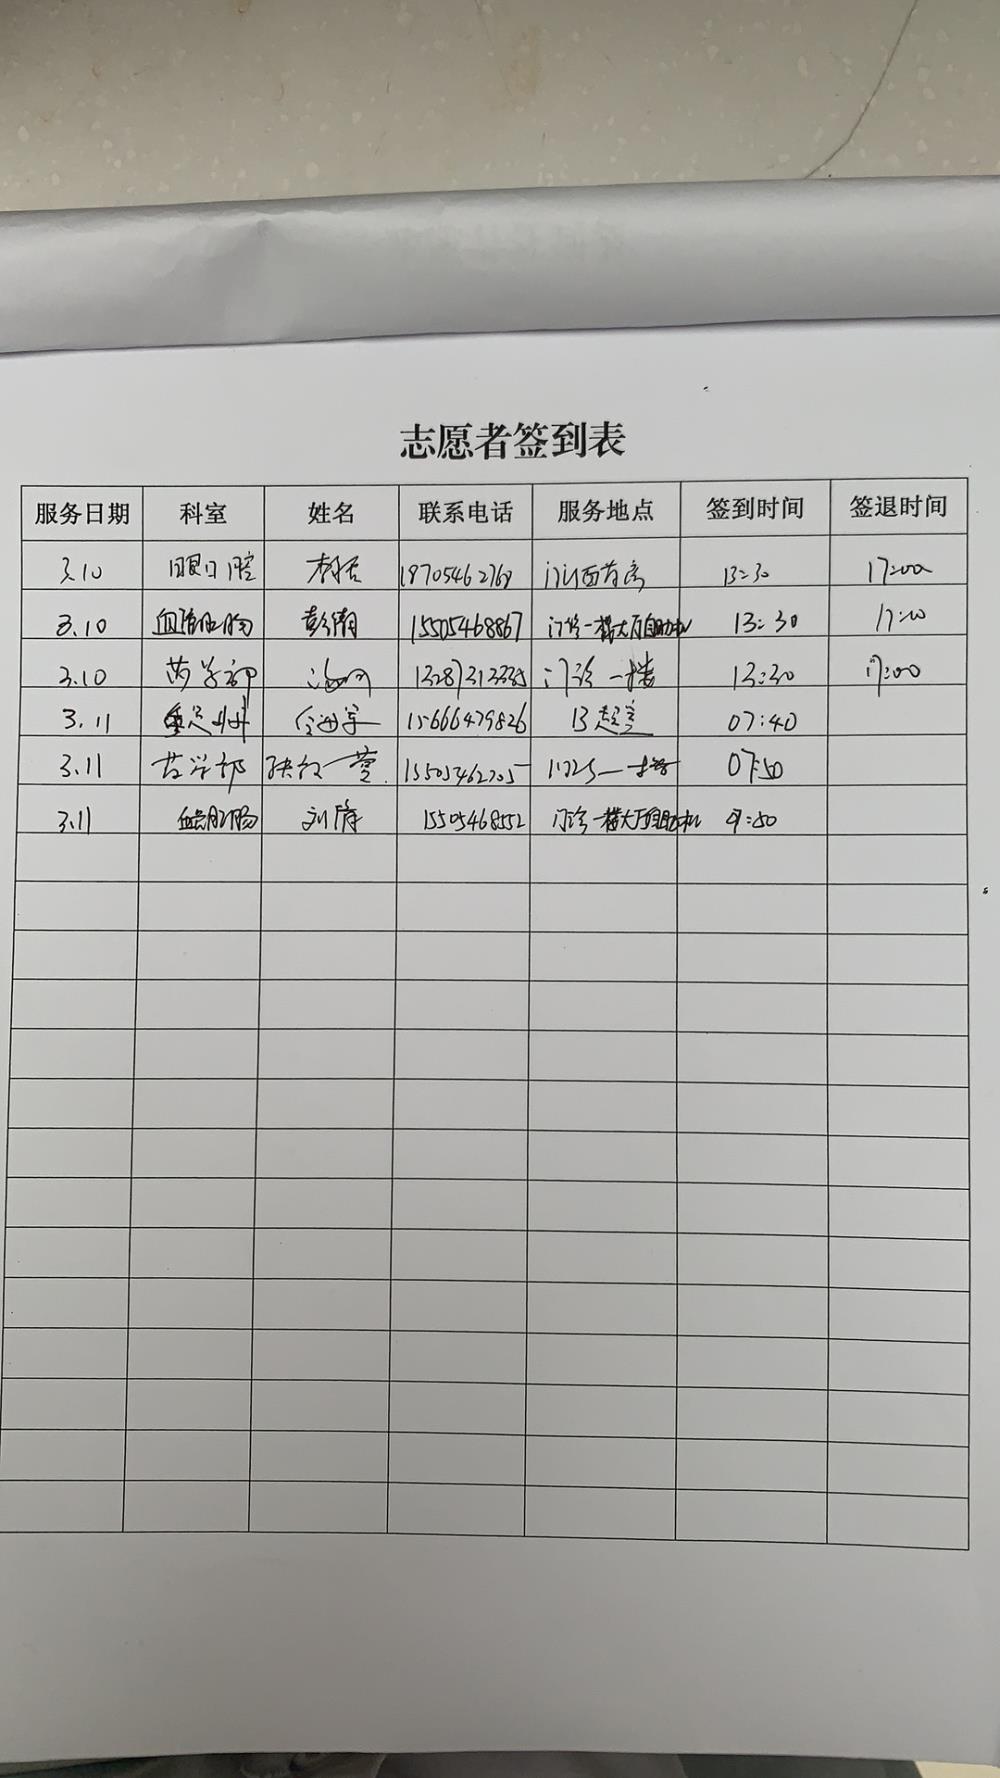 志愿者签到表
服务日期 科室 姓名 联系电话 服务地点 签到时间 签退时间
3.10 眼口腔 18705462768 13:30 17:00
3.10 彭潮 15505468867 门诊一楼大厅自助机 13:30 17:00
3.10 药学部 13287313335 门诊一楼 13:30 17:00
3.11 15666479826 B超室 07:40
3.11 药学部 15505462705 门诊一楼 07:50
3.11 刘 15505468552 门诊一楼大厅自助机 :50